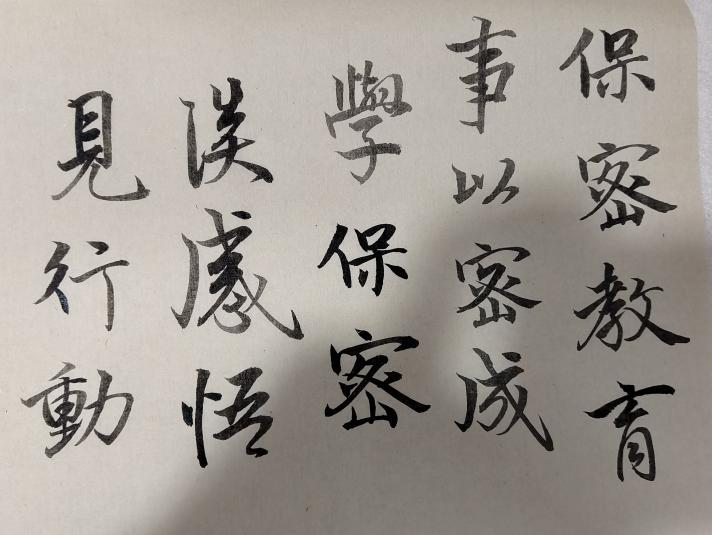 保密教育
事以密成
學保密
谈感悟
見行動